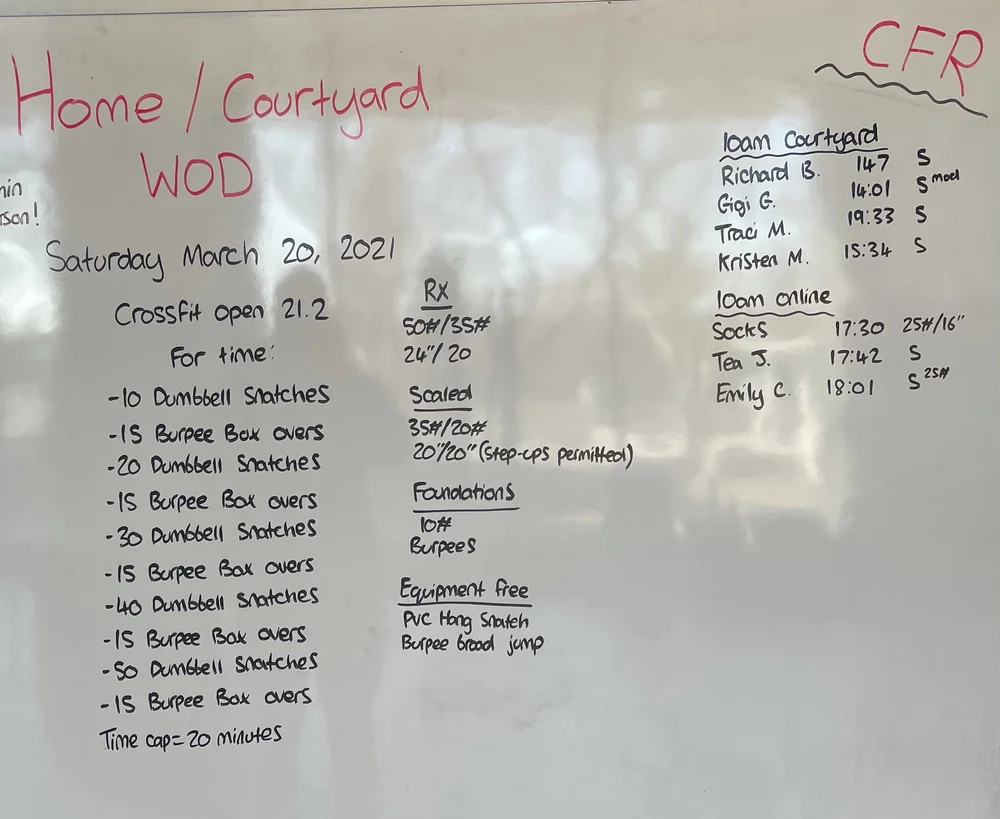 Home / Courtyard
WOD
min
rson!
Saturday March 20, 2021
Crossfit open 21.2
For time:
-10 Dumbbell Snatches
-15 Burpee Box overs
-20 Dumbbell Snatches
-15 Burpee Box overs
-30 Dumbbell Snatches
-15 Burpee Box overs
-40 Dumbbell Snatches
-15 Burpee Box overs
-50 Dumbbell Snatches
-15 Burpee Box overs
Time cap=20 minutes
RX
50#/35#
24"/20
Scaled
35#/20#
20"/20" (Step-ups permitted)
Foundations
10#
Burpees
Equipment free
PVC Hang Snatch
Burpee broad jump
CFR
10am Courtyard
Richard B. 147 S
Gigi G. 14:01 S mod
Traci M. 19:33 S
Kristen M. 15:34 S
10am online
Socks 17:30 25#/16"
Tea J. 17:42 S
Emily C. 18:01 S 25#